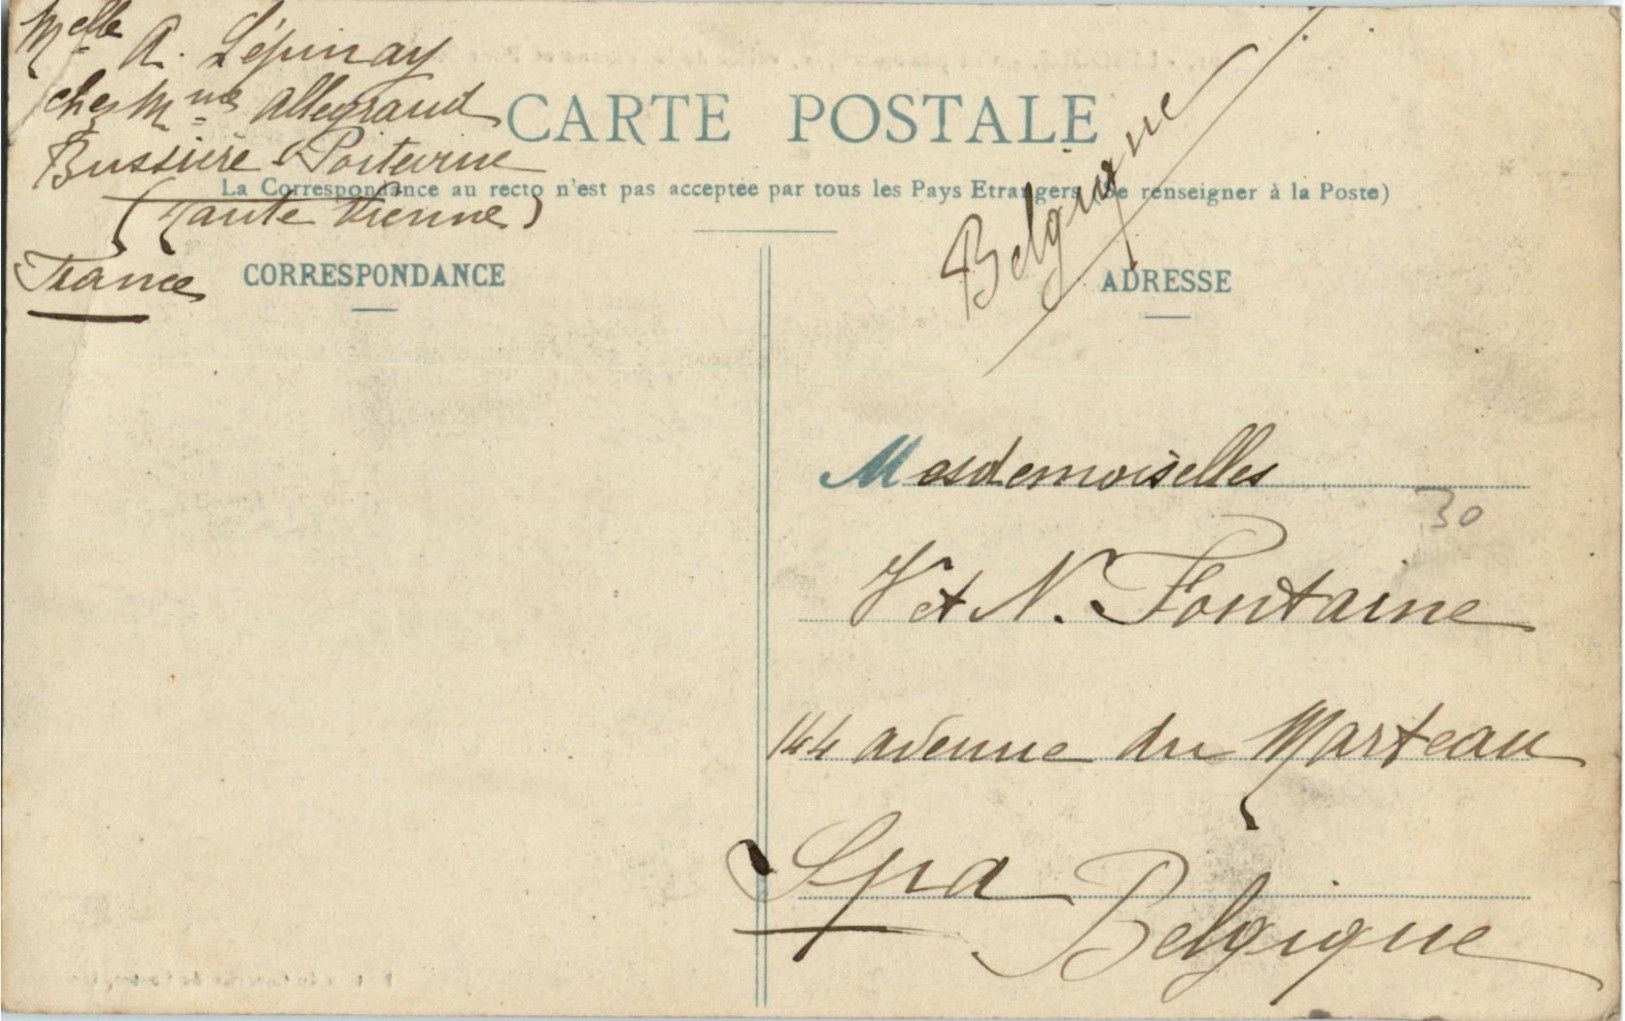 Melle A. Lépinay
chez Mme Allegraud
Bussière-Poitevine
(Haute Vienne)
France
CARTE POSTALE
La Correspondance au recto n'est pas acceptée par tous les Pays Etrangers (Se renseigner à la Poste)
Belgique
CORRESPONDANCE
ADRESSE
Mesdemoiselles
30
V et N. Fontaine
144 avenue du Marteau
Spa
Belgique